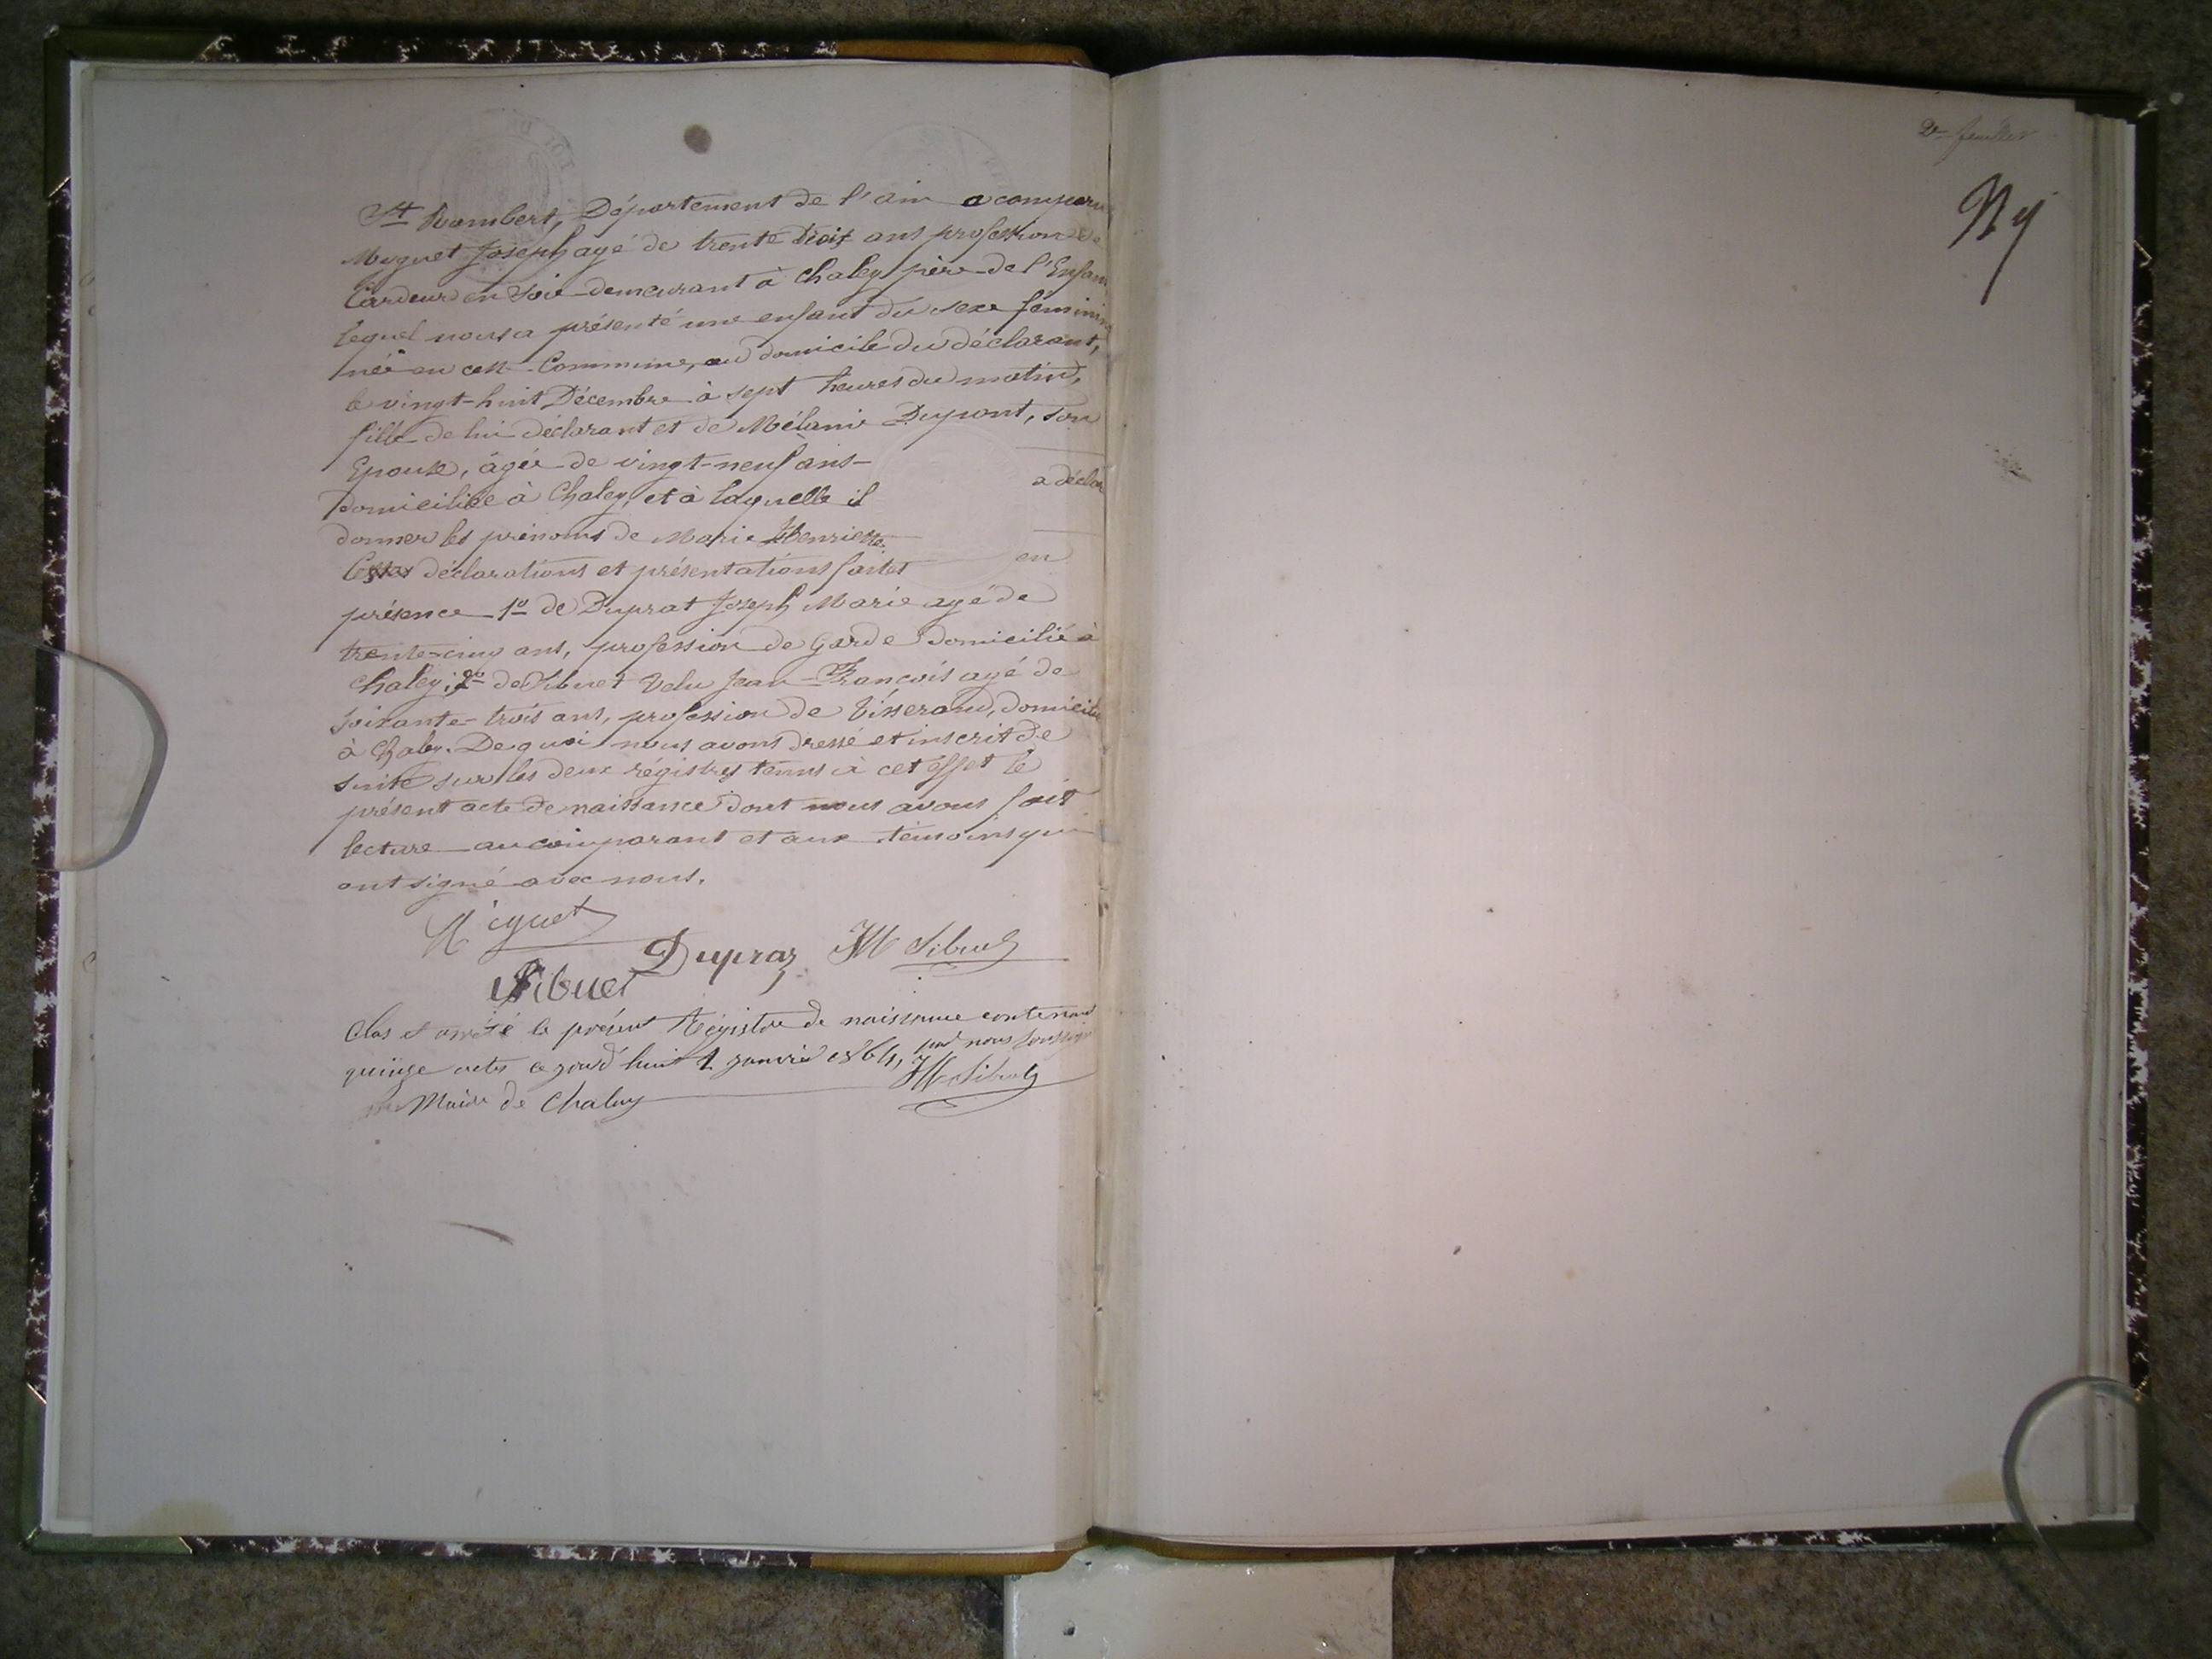 St Rambert, Département de l'ain a comparu
Myguet Joseph agé de trente ans profession de
Cardeur en Soie demeurant à Chaley père de l'Enfant
lequel nous a présenté une enfant du sexe féminin
née en cette Commune, au domicile du déclarant,
le vingt-huit Décembre à sept heures du matin,
fille de lui déclarant et de Mélanie Dupont, son
Epouse, agée de vingt-neuf ans
domiciliée à Chaley, et à laquelle il a déclaré
donner les prénoms de Marie Henriette.
Lesdes déclarations et présentations faites en
présence 1o de Duprat Joseph Marie agé de
trente-cinq ans, profession de Garde domicilié à
Chaley; 2o de Sibuet Velu Jean-François agé de
soixante-trois ans, profession de Tisserand, domicilié
à Chaley. De quoi nous avons dressé et inscrit de
suite sur les deux régistres tenus à cet effet le
présent acte de naissance dont nous avons fait
lecture au comparant et aux témoins qui
ont signé avec nous.
Miguet
Dupraz JM Sibuet
Sibuet
Clos et arrêté le présent Régistre de naissance contenant
quinze actes ce jourd'huit 1 janvier 1864, par nous soussigné
Maire de Chaley JM Sibuet
2e feuillet
Ny